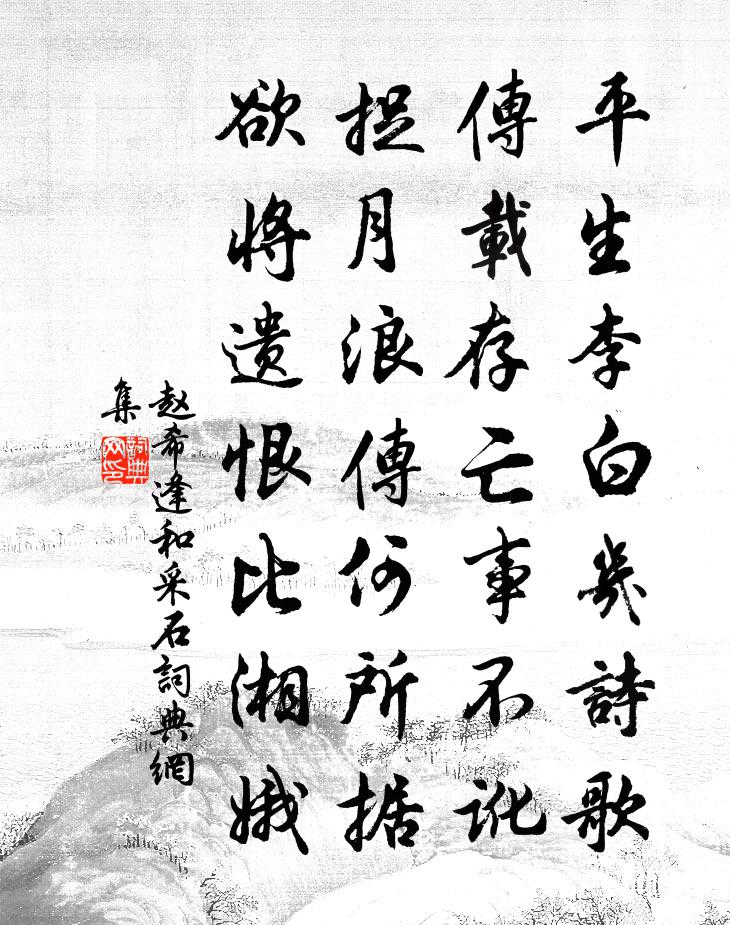 平生李白幾詩歌
傳載存亡事不訛
捉月浪傳何所据
欲將遺恨比湘娥
赵希逢和采石詞典網
集
詞典網印